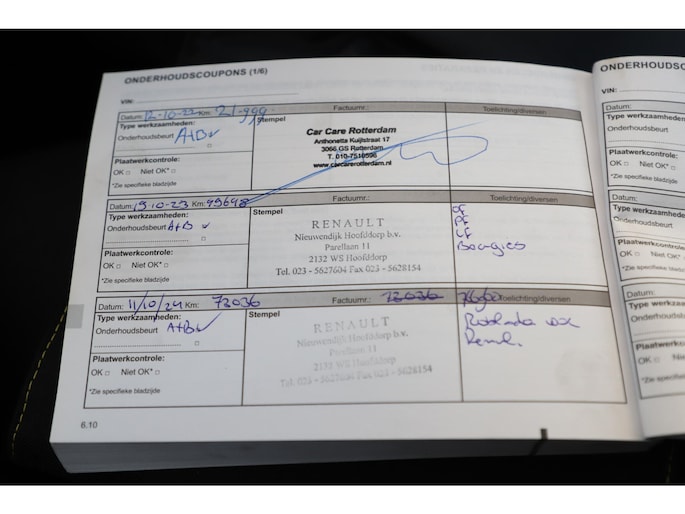 ONDERHOUDSCOUPONS (1/6)
VIN:
Datum: 12-10-22 Km: 21-999
Factuurnr.:
Toelichting/diversen
Type werkzaamheden:
Onderhoudsbeurt A+B
Stempel
Car Care Rotterdam
Anthonetta Kuijlstraat 17
3066 GS Rotterdam
T. 010-7510596
www.carcarerotterdam.nl
Plaatwerkcontrole:
OK □ Niet OK* □
*Zie specifieke bladzijde
Datum: 19-10-23 Km: 45648
Factuurnr.:
Toelichting/diversen
Type werkzaamheden:
Onderhoudsbeurt A+B
Stempel
RENAULT
Nieuwendijk Hoofddorp b.v.
Parellaan 11
2132 WS Hoofddorp
Tel. 023 - 5627604 Fax 023 - 5628154
OF
PF
LF
Bougies
Plaatwerkcontrole:
OK □ Niet OK* □
*Zie specifieke bladzijde
Datum: 11/10/24 Km: 73036
Factuurnr.: 73036
Toelichting/diversen
Type werkzaamheden:
Onderhoudsbeurt A+B
Stempel
RENAULT
Nieuwendijk Hoofddorp b.v.
Parellaan 11
2132 WS Hoofddorp
Tel. 023 - 5627604 Fax 023 - 5628154
Plaatwerkcontrole:
OK □ Niet OK* □
*Zie specifieke bladzijde
6.10
ONDERHOUDSC
VIN:
Datum:
Type werkzaamh
Onderhoudsbeurt
Plaatwerkcontrole
OK □ Niet OK
*Zie specifieke bladz
Datum:
Type werkzaamhe
Onderhoudsbeurt
Plaatwerkcontrole
OK □ Niet OK
*Zie specifieke bladzij
Datum:
Type werkzaamhed
Onderhoudsbeurt
Plaatwerkcontrole
OK □ Niet OK*
*Zie specifieke bladzijd